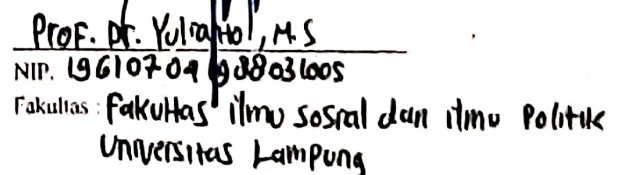 Prof. Dr. Yulianto, M.S
NIP. 19610704 198803 1005
Fakultas : Fakultas ilmu sosial dan ilmu Politik
Universitas Lampung